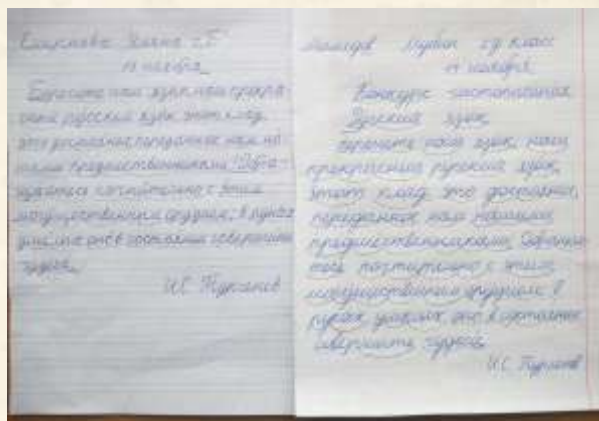 Смирнова 2 "Б"
19 ноября
Берегите наш язык, наш прекрас-
ный русский язык, этот клад,
это достояние, переданное нам на-
шими предшественниками! Обра-
щайтесь почтительно с этим
могущественным орудием; в руках
умелых оно в состоянии совершать
чудеса.
И.С. Тургенев
Мамедов 2 д класс
19 ноября
Конкурс чистописания
Русский язык
Берегите наш язык, наш
прекрасный русский язык,
этот клад это достояние,
переданное нам нашими
предшественниками,
почтительно с этим
могущественным орудием в
руках умелых оно в состоянии
совершать чудеса.
И.С. Тургенев